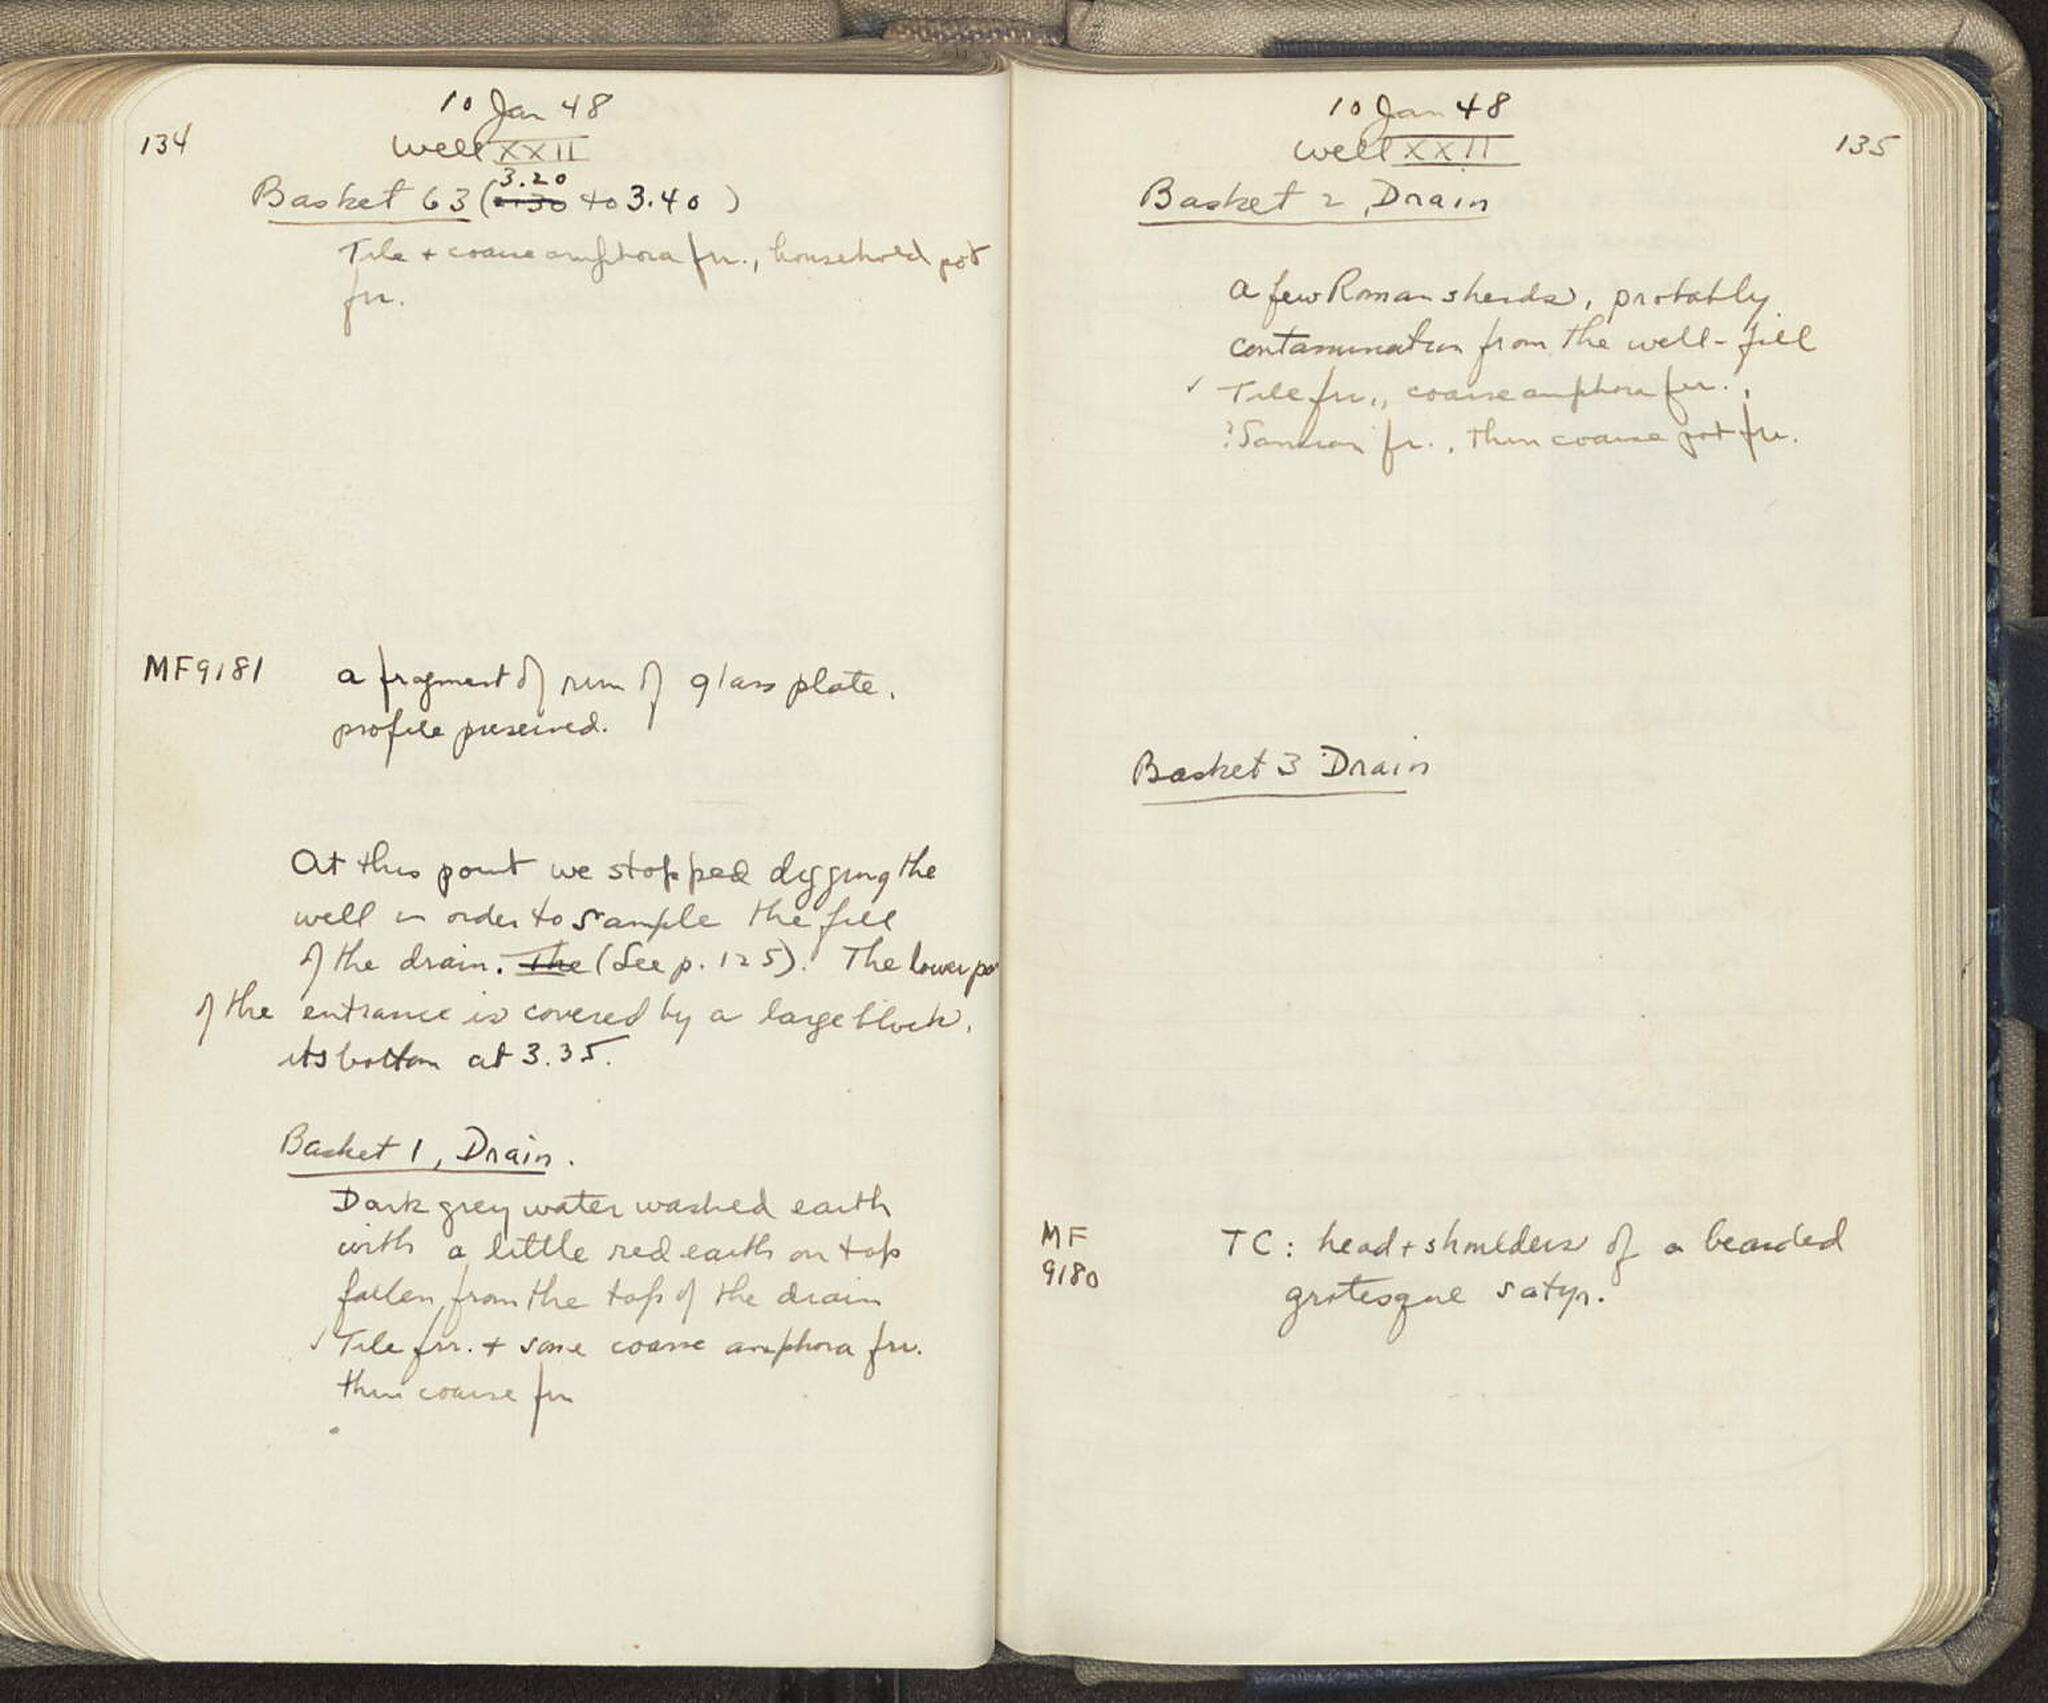 134
10 Jan 48
Well XXII
3.20
Basket 63 ( to 3.40 )
Tile + coarse amphora frr., household pot
frr.
MF9181 a fragment of rim of glass plate,
profile preserved.
At this point we stopped digging the
well in order to sample the fill
of the drain. The (See p. 125). The lower
of the entrance is covered by a large block,
its bottom at 3.35.
Basket 1, Drain.
Dark grey water washed earth
with a little red earth on top
fallen from the top of the drain
✓ Tile frr. + some coarse amphora frr.
thin coarse frr
10 Jan 48
Well XXII
135
Basket 2, Drain
A few Roman sherds, probably
contamination from the well-fill
✓ Tile frr., coarse amphora frr.,
?Samian fr., thin coarse pot frr.
Basket 3 Drain
MF
9180
TC: head + shoulders of a bearded
grotesque satyr.